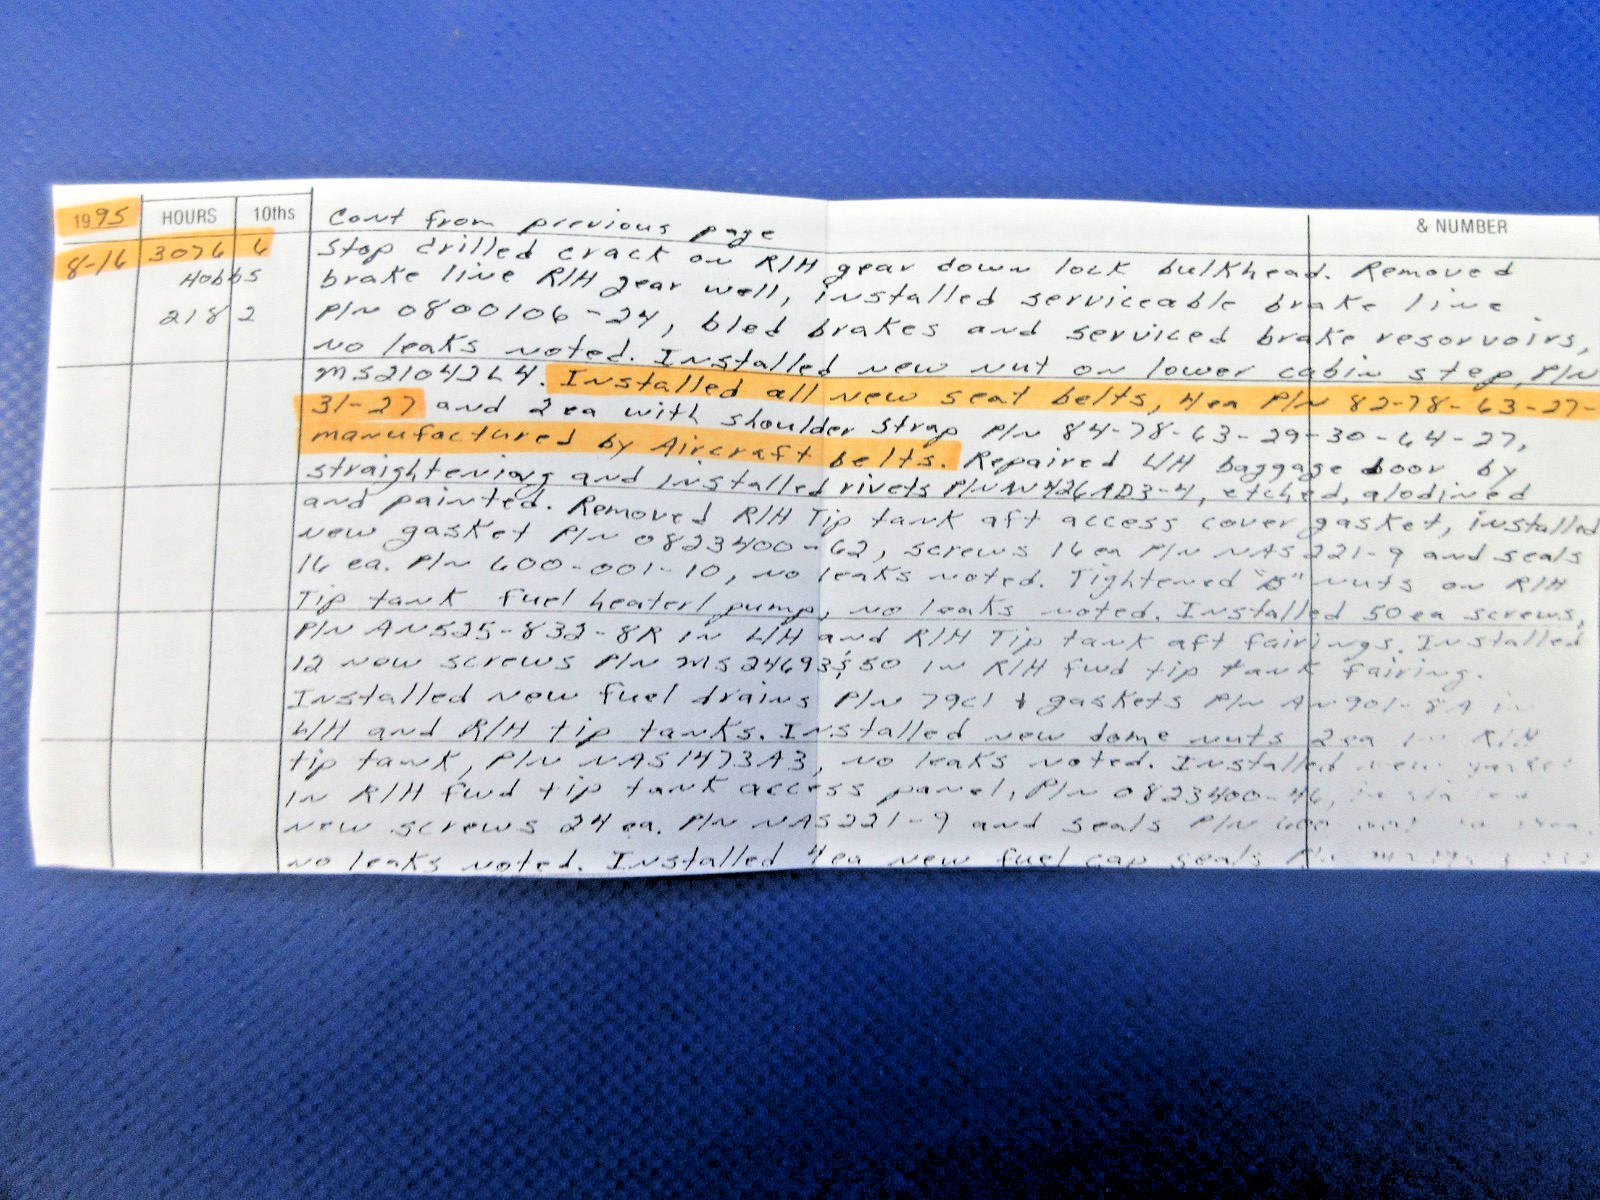 1995 HOURS 10ths Cont from previous page & NUMBER
8-16 3076 6 Stop drilled crack on R/H gear down lock bulkhead. Removed
Hobbs brake line R/H gear well, installed serviceable brake line
218 2 P/N 0800106-24, bled brakes and serviced brake resorvoirs,
no leaks noted. Installed new nut on lower cabin step, P/N
MS21042L4. Installed all new seat belts, 4ea P/N 82-78-63-27-
31-27 and 2ea with shoulder strap P/N 84-78-63-29-30-64-27,
manufactured by Aircraft belts. Repaired L/H baggage door by
straightening and installed rivets P/N AN426AD3-4, etched, alodined
and painted. Removed R/H Tip tank aft access cover gasket, installed
new gasket P/N 0823400-62, screws 16ea P/N NAS221-9 and seals
16 ea. P/N 600-001-10, no leaks noted. Tightened "B" nuts on R/H
Tip tank fuel heater/pump, no leaks noted. Installed 50ea screws,
P/N AN525-832-8R in L/H and R/H Tip tank aft fairings. Installed
12 new screws P/N MS24693S50 in R/H fwd tip tank fairing.
Installed new fuel drains P/N 79C1 & gaskets P/N AN901-8A in
L/H and R/H tip tanks. Installed new dome nuts 2ea in R/H
tip tank, P/N NAS1473A3, no leaks noted. Installed new gasket
in R/H fwd tip tank access panel, P/N 0823400-46,
new screws 24 ea. P/N NAS221-9 and seals P/N
no leaks noted. Installed 4ea new fuel cap seals P/N